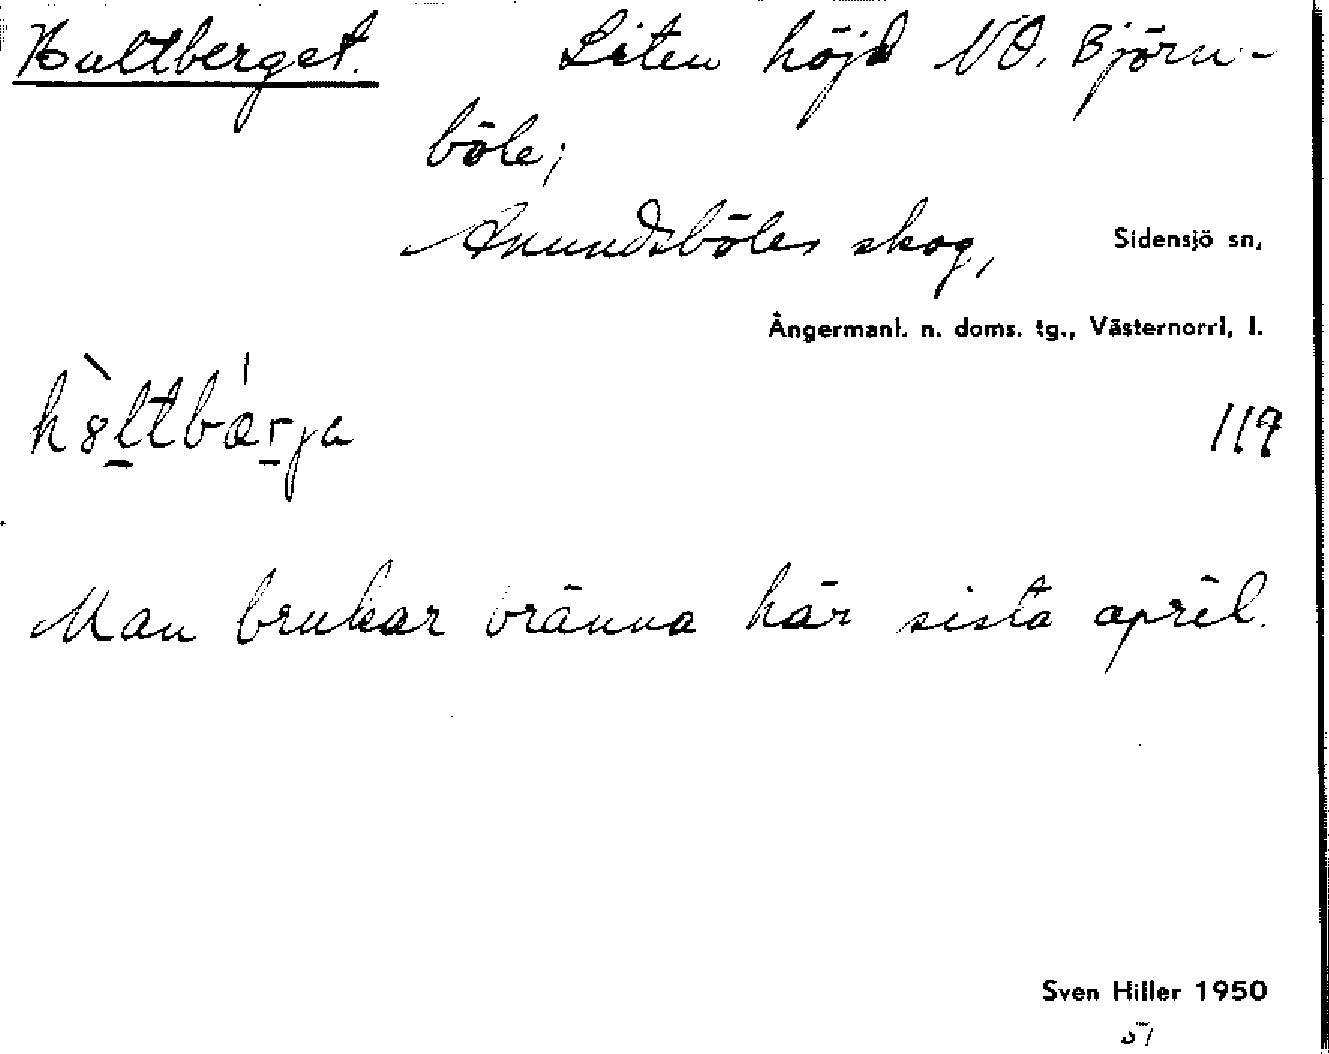 Hultberget. Liten höjd NÖ. Björn-
böle;
Anundsböles skog, Sidensjö sn,
Ångermanl. n. doms. tg., Västernorrl. l.
h8̀ltbærja 117
Man brukar bränna här sista april.
Sven Hiller 1950
51